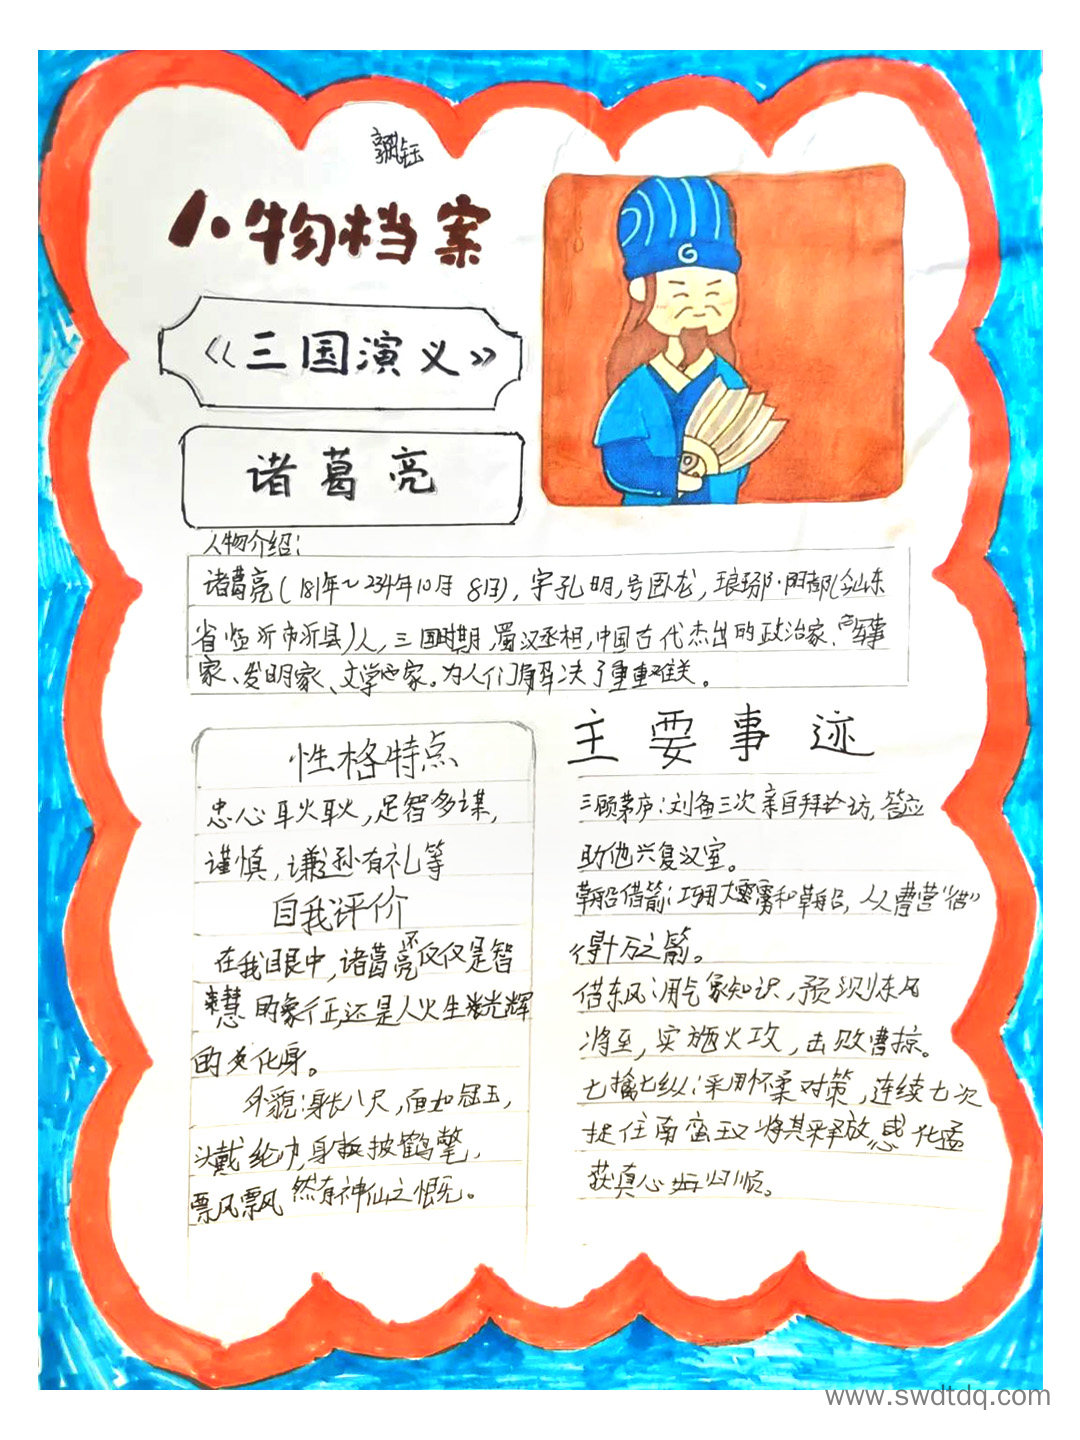 人物档案
《三国演义》
诸葛亮
人物介绍:
诸葛亮(181年~234年10月8日),字孔明,号卧龙,琅琊·阳都(今山东
省临沂市沂县)人,三国时期,蜀汉丞相,中国古代杰出的政治家、军事
家、发明家、文学家。为人们解决了重重难关。
性格特点
忠心耿耿,足智多谋,
谨慎,谦逊有礼等
自我评价
在我眼中,诸葛亮还仅仅是智
慧的象征,还是人性光辉
的化身。
外貌:身长八尺,面如冠玉,
头戴纶巾,身披鹤氅,
飘飘然有神仙之慨。
主要事迹
三顾茅庐:刘备三次亲自拜访,答应
助他兴复汉室。
草船借箭:巧用大雾和草船,从曹营“借”
得十万之箭。
借东风:用气象知识,预测东风
将至,实施火攻,击败曹操。
七擒七纵:采用怀柔对策,连续七次
捉住南蛮王又将其释放感化孟
获真心归顺。
www.swdtdq.com